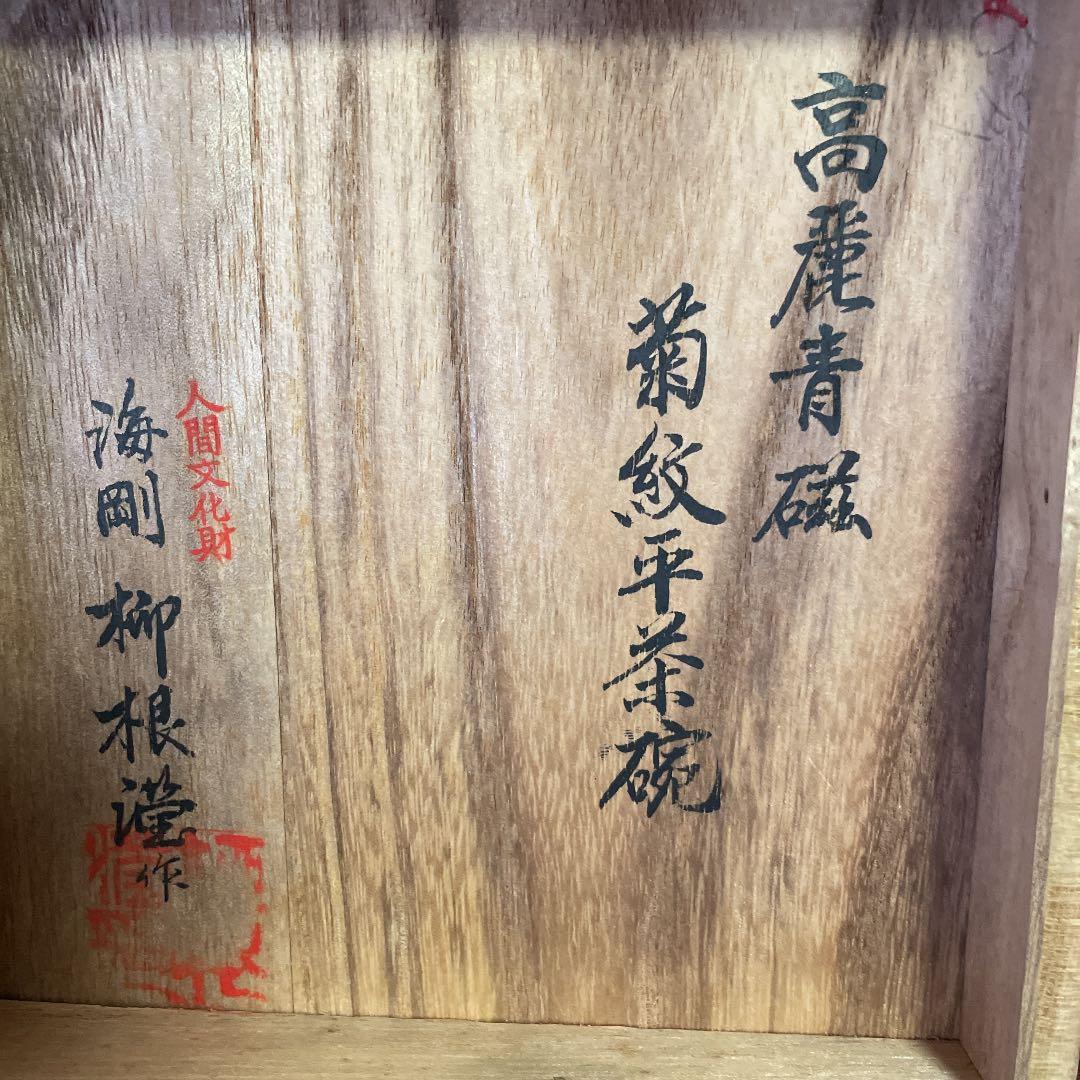 高麗青磁
菊紋平茶碗
人間文化財
海剛 柳根瀅作